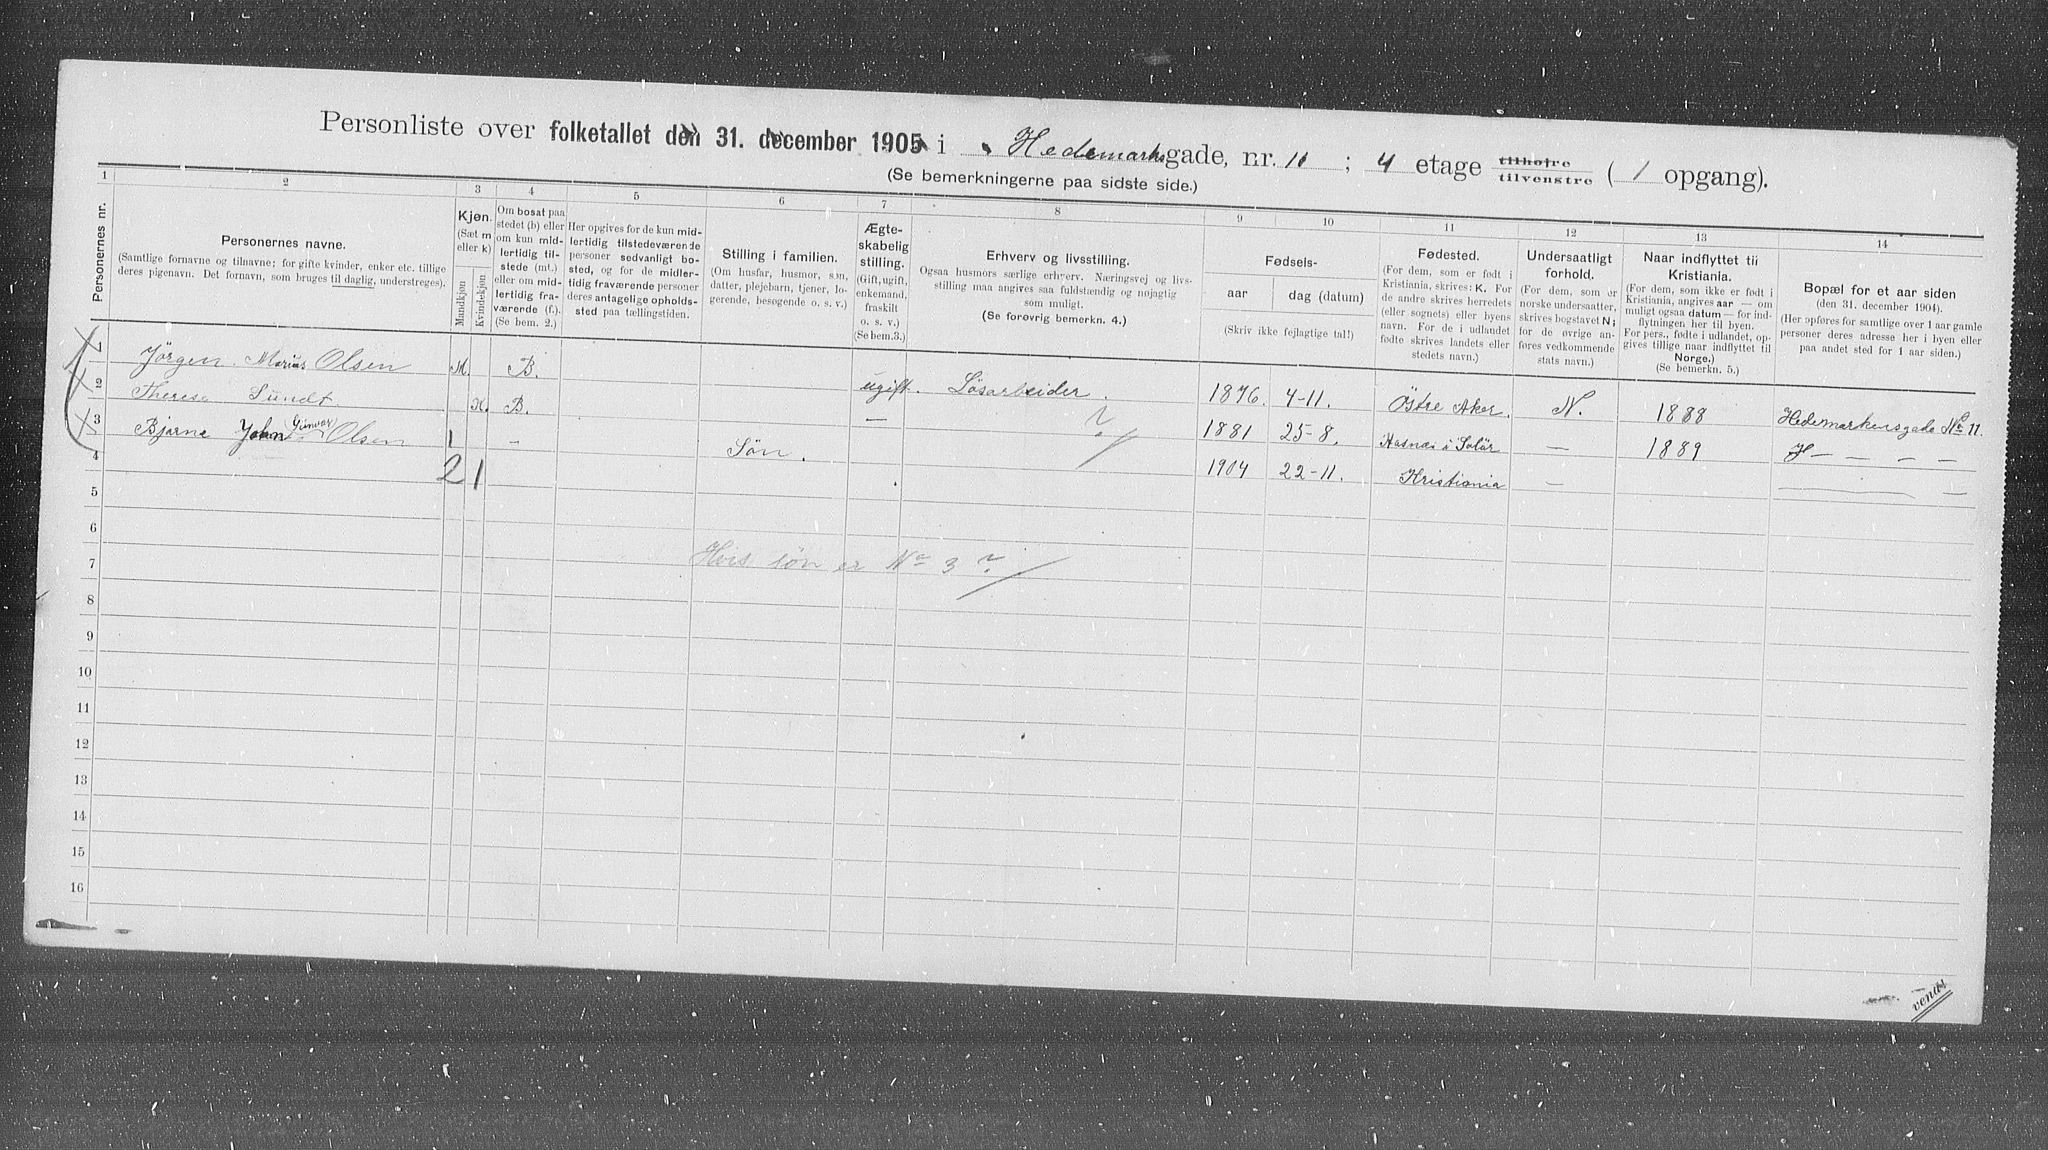 Personliste over folketallet den 31. december 1905 i Hedemarksgade, nr. 11 ; 4 etage tilhøire tilvenstre ( 1 opgang).
(Se bemerkningerne paa sidste side.)
1 2 3 4 5 6 7 8 9 10 11 12 13 14
Personernes nr.
Personernes navne.
(Samtlige fornavne og tilnavne; for gifte kvinder, enker etc. tillige
deres pigenavn. Det fornavn, som bruges til daglig, understreges).
Kjøn.
(Sæt m
eller k)
Mandkjøn
Kvindekjøn
Om bosat paa
stedet (b) eller
om kun mid-
lertidig til-
stede (mt.)
eller om mid-
lertidig fra-
værende (f.).
(Se bem. 2.)
Her opgives for de kun mid-
lertidig tilstedeværende
personer sedvanligt bo-
sted, og for de midler-
tidig fraværende personer
deres antagelige opholds-
sted paa tællingstiden.
Stilling i familien.
(Om husfar, husmor, søn,
datter, plejebarn, tjener, lo-
gerende, besøgende o. s. v.)
Ægte-
skabelig
stilling.
(Gift, ugift,
enkemand,
fraskilt
o. s. v.)
(Se bem. 3.)
Erhverv og livsstilling.
Ogsaa husmors særlige erhverv. Næringsvej og livs-
stilling maa angives saa fuldstændig og nøjagtig
som muligt.
(Se forøvrig bemerkn. 4.)
Fødsels-
aar
dag (datum)
(Skriv ikke fejlagtige tal!)
Fødested.
(For dem, som er født i
Kristiania, skrives: K. For
de andre skrives herredets
(eller sognets) eller byens
navn. For de i udlandet
fødte skrives landets eller
stedets navn.)
Undersaatligt
forhold.
(For dem, som er
norske undersaatter,
skrives bogstavet N;
for de øvrige an-
føres vedkommende
stats navn.)
Naar indflyttet til
Kristiania.
(For dem, som ikke er født i
Kristiania, angives aar — om
muligt ogsaa datum — for ind-
flytningen her til byen.
For pers., fødte i udlandet, op-
gives tillige naar indflyttet til
Norge.)
(Se bemerkn. 5.)
Bopæl for et aar siden
(den 31. december 1904).
(Her opføres for samtlige over 1 aar gamle
personer deres adresse her i byen eller
paa andet sted for 1 aar siden.)
1 Jörgen Marius Olsen M. B. ugift. Løsarbeider. 1876. 4-11. Östre Aker. N. 1888 Hedemarkensgade No 11.
2 Therese Sundt K. B. — ? 1881 25-8. Hasnæs i Solör — 1889 H — — — —
3 Bjarne John Gunvar Olsen 1 — Sön. 1904 22-11. Kristiania — —
4 2 1
5
6
7 Hvis sön er No 3 ?
8
9
10
11
12
13
14
15
16
vend!